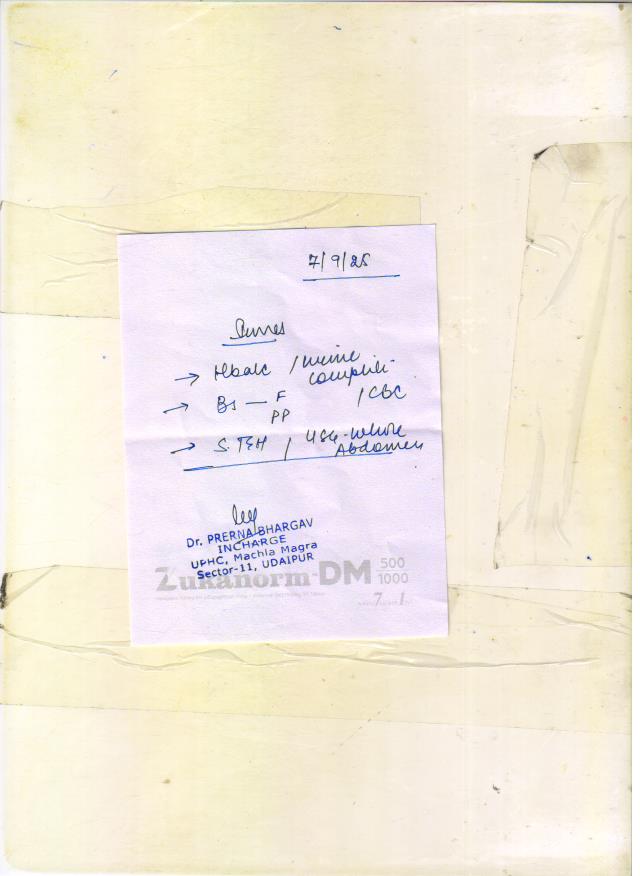 7/9/25
→ Hba1c / urine
complete
→ BS — F / CBC
PP
→ S. TSH / USG-whole
Abdomen
Dr. PRERNA BHARGAV
INCHARGE
UPHC, Machla Magra
Sector-11, UDAIPUR
Zukanorm-DM 500
1000